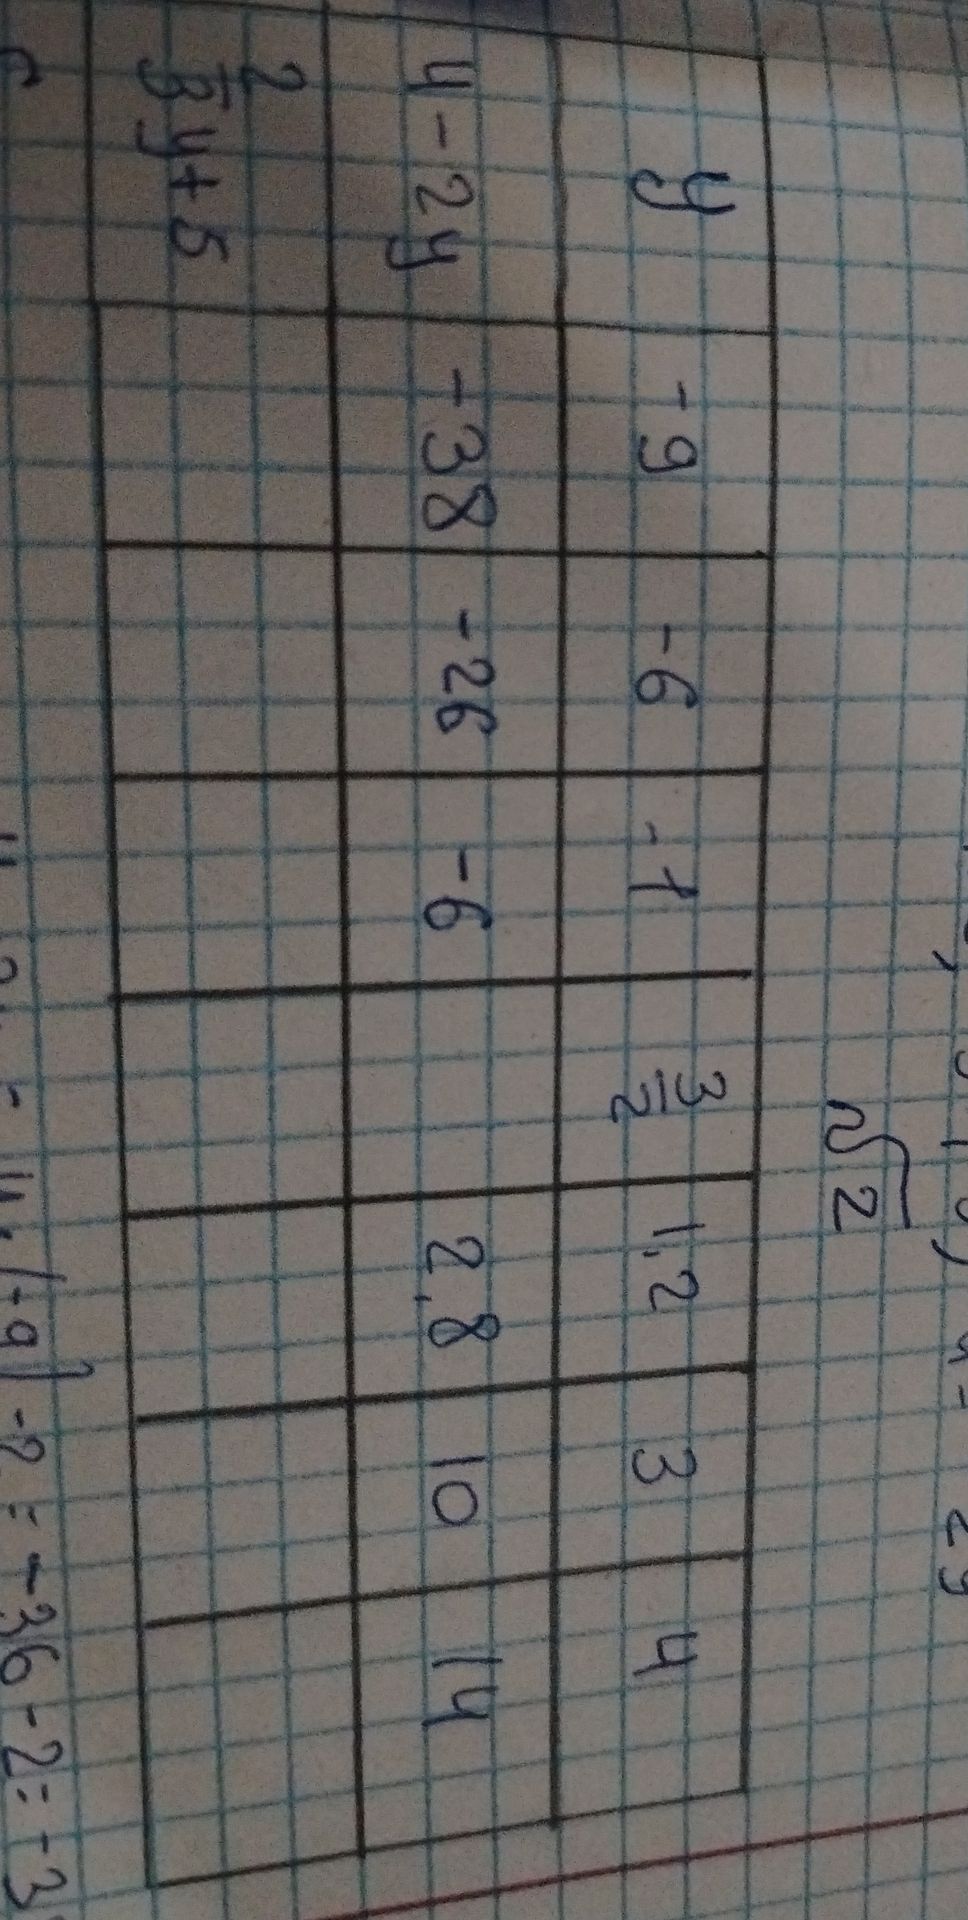 √2
y -9 -6 -1 3/2 1,2 3 4
4-2y -38 -26 -6 2,8 10 14
2/3 y+5
(-9) -2 = -36-2=-3